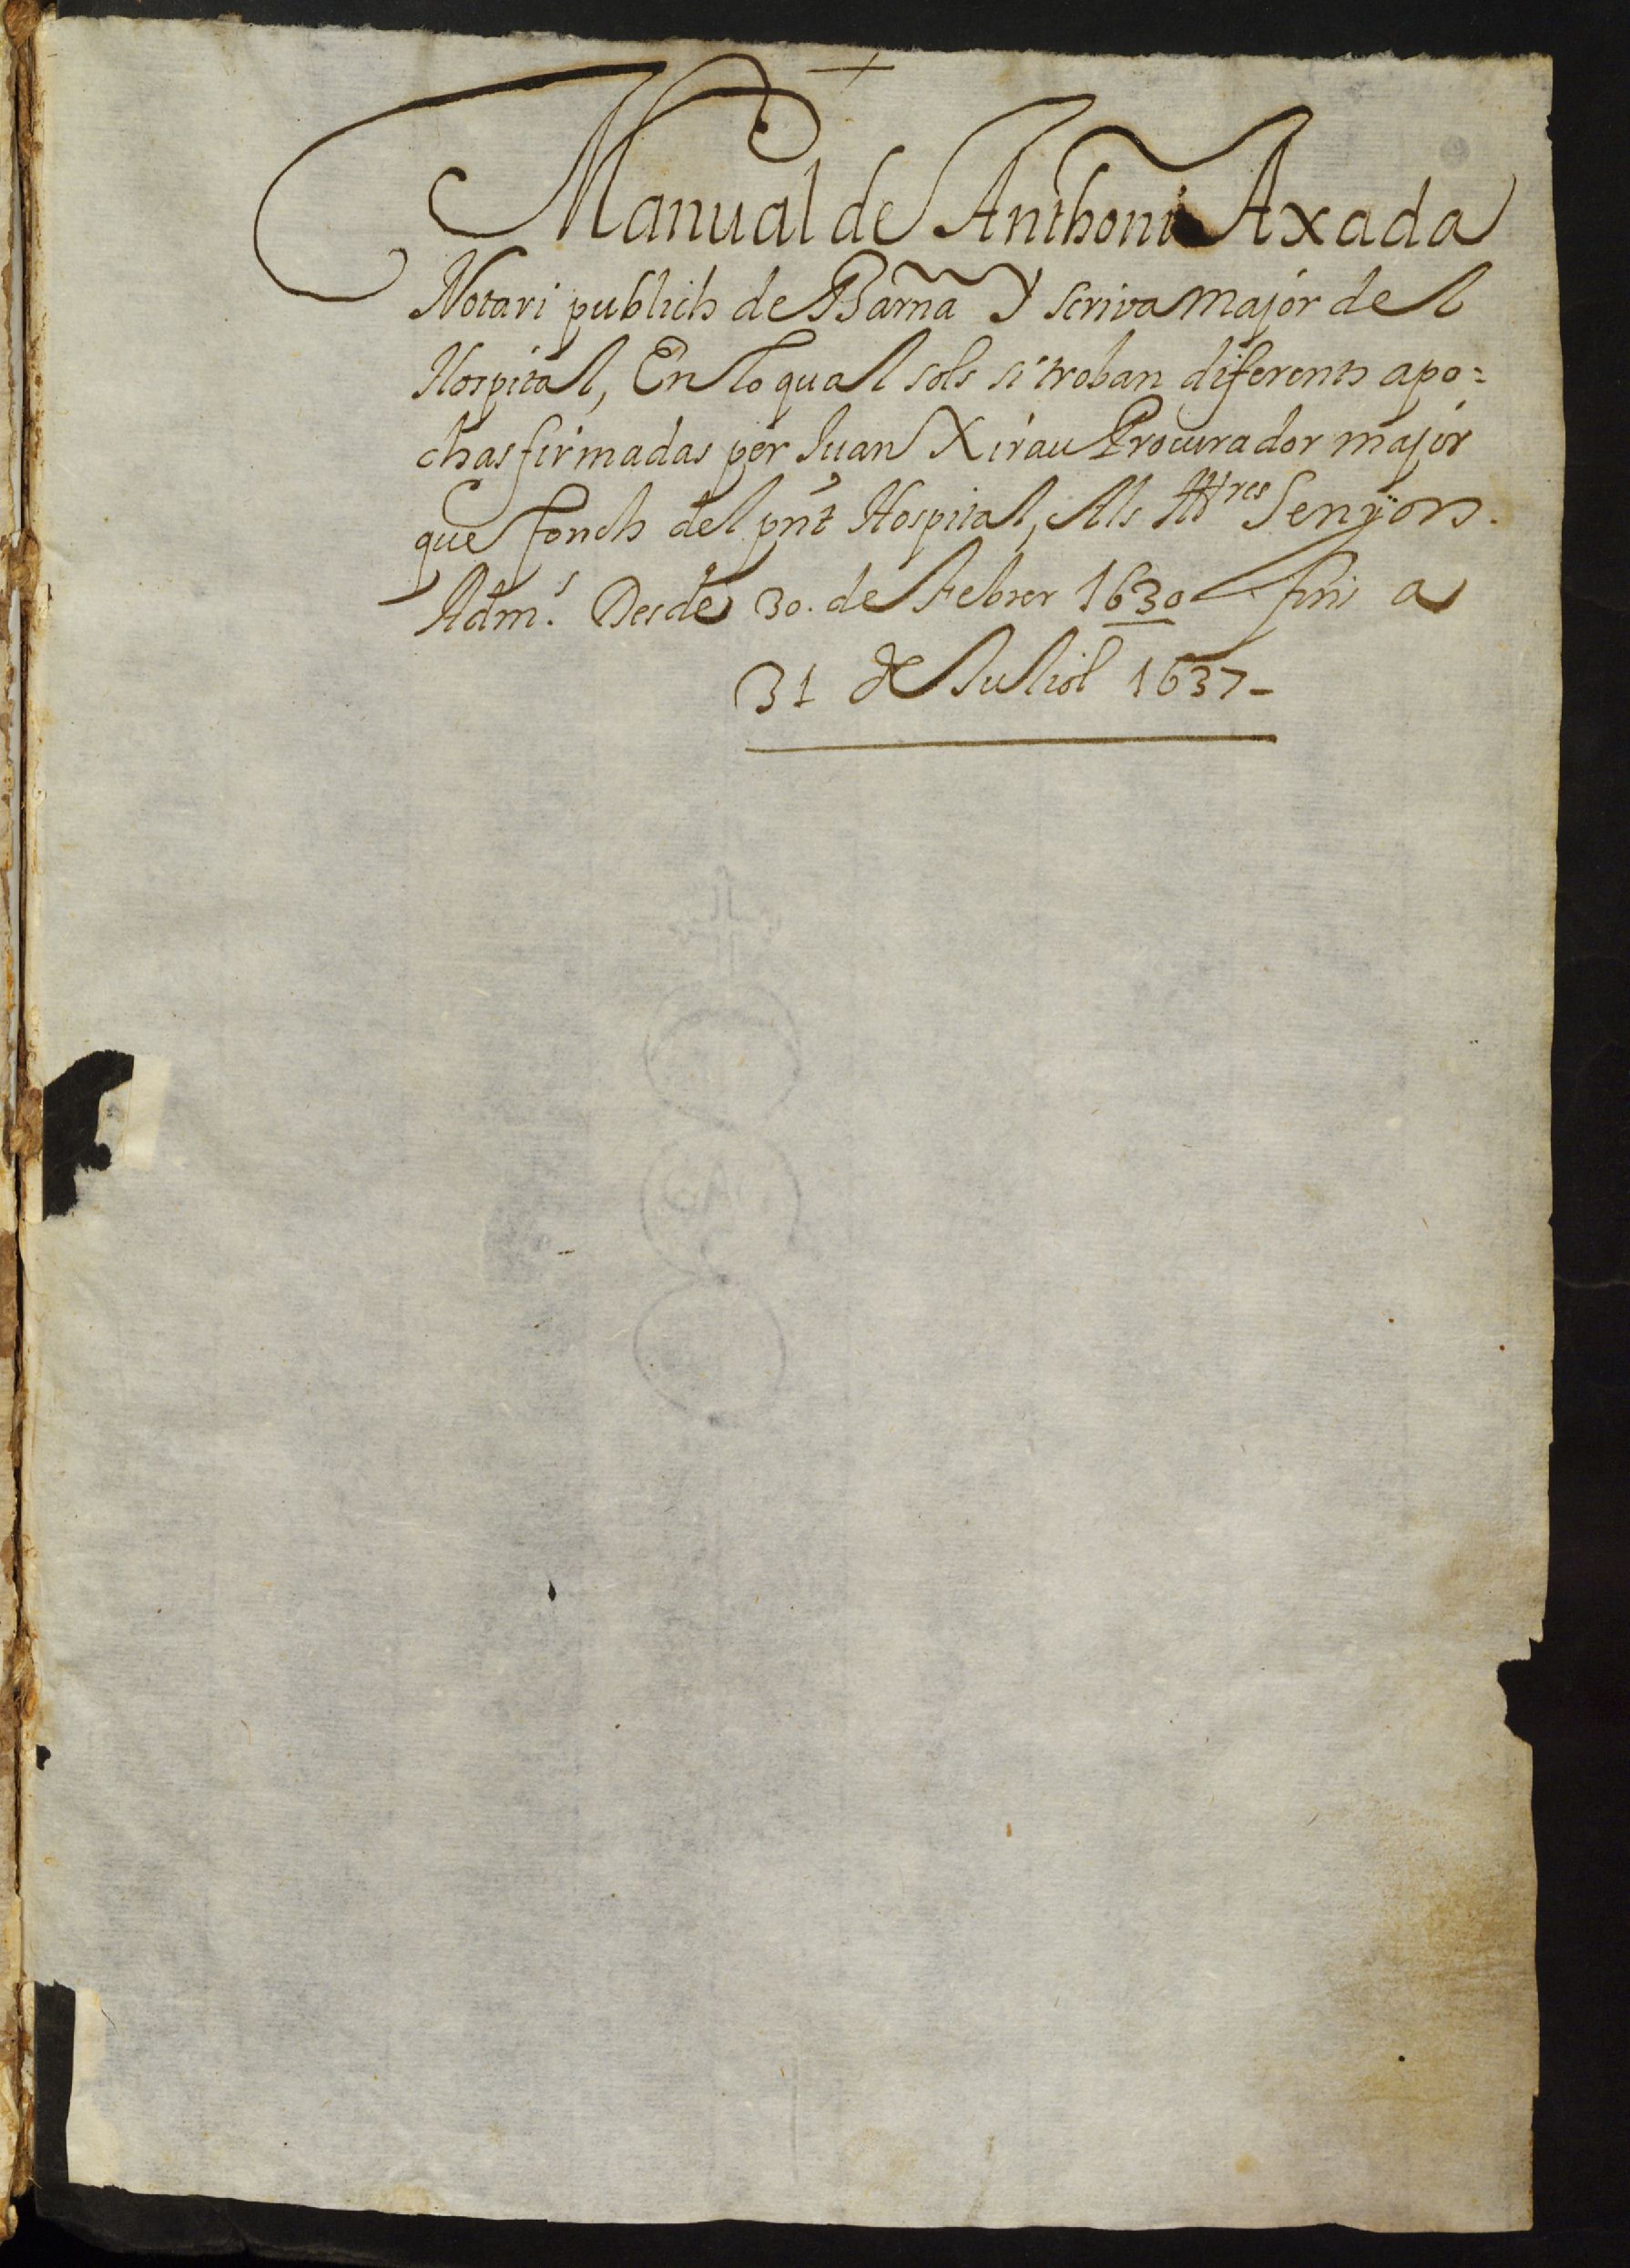 Manual de Anthoni Axada
Notari publich de Barna Y scriva major del
Hospital, En lo qual sols si troban diferents apo=
chas firmadas per Juan Xirau Procurador major
que fonch del pnt Hospital, Als Illres Senyors.
Adm.s Desde 30. de Febrer 1630 fins a
31 de Juliol 1637-